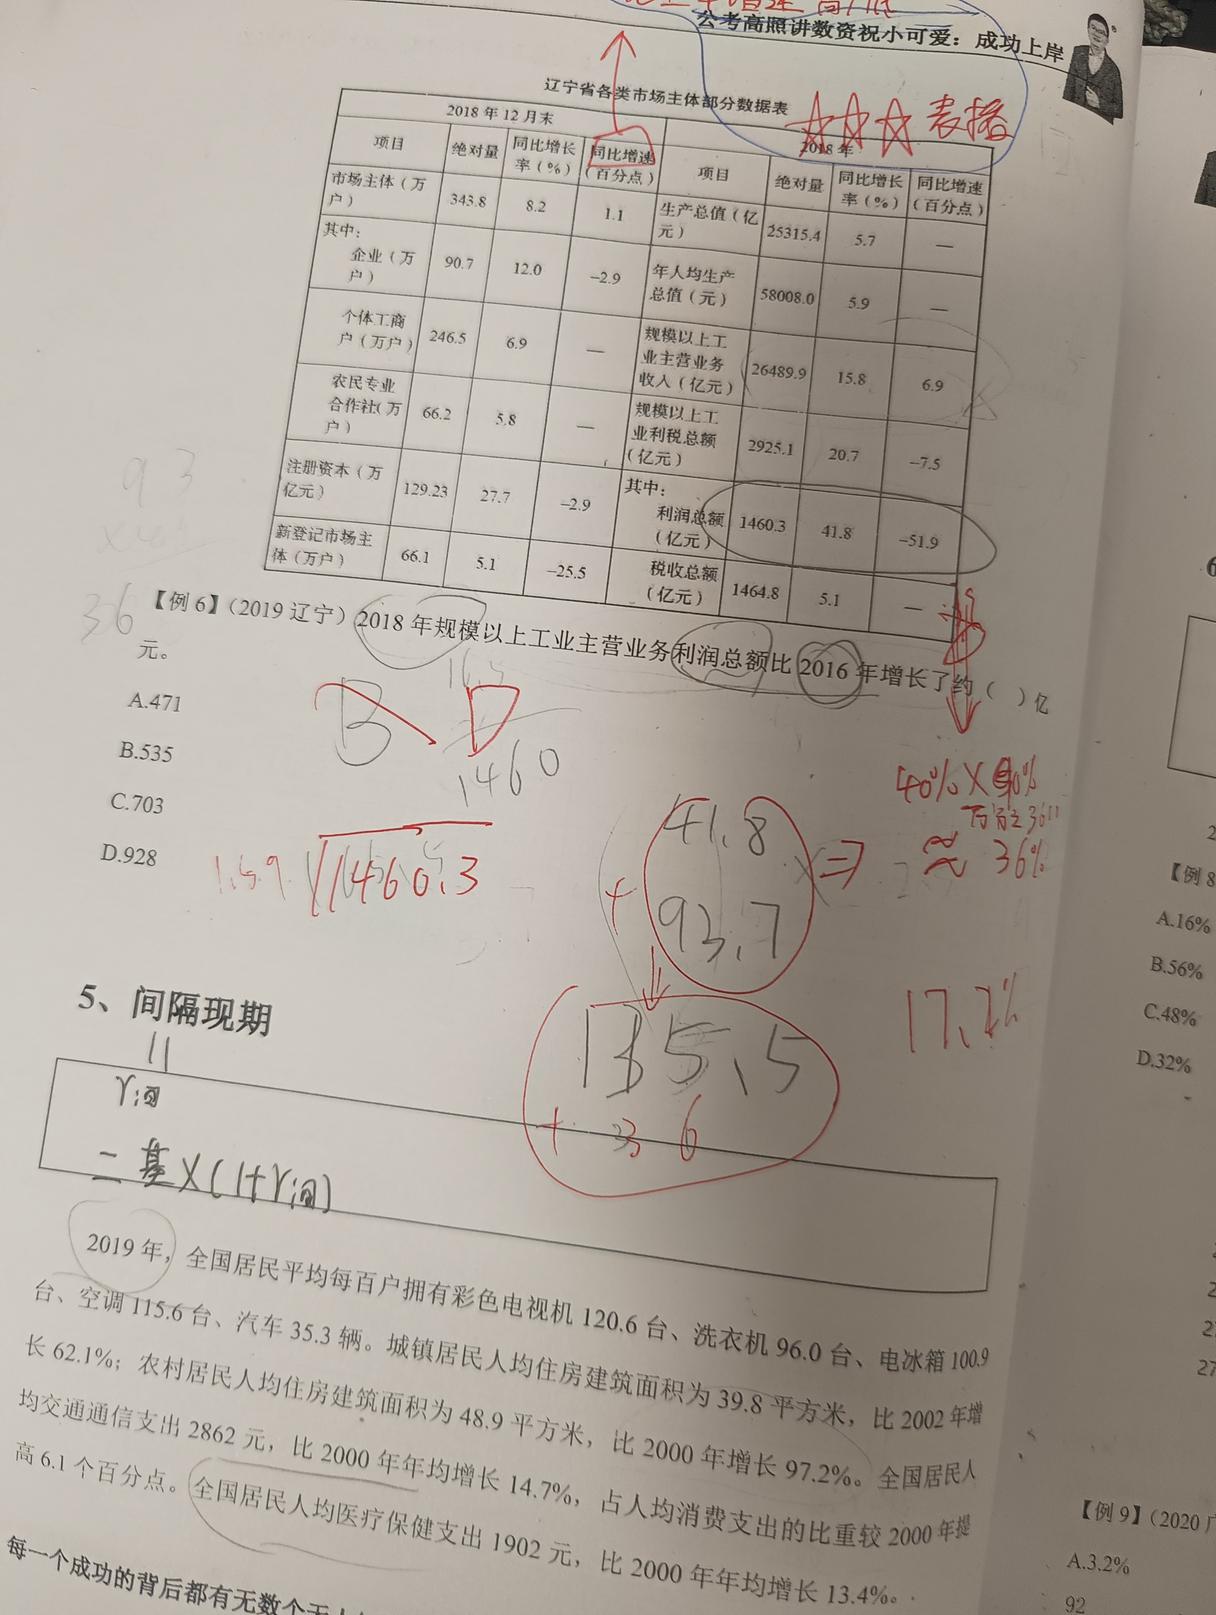 公考高照讲数资祝小可爱：成功上岸
辽宁省各类市场主体部分数据表
☆☆☆ 表格
2018 年 12 月末 2018 年
项目 绝对量 同比增长率（%） 同比增速（百分点） 项目 绝对量 同比增长率（%） 同比增速（百分点）
市场主体（万户） 343.8 8.2 1.1 生产总值（亿元） 25315.4 5.7 —
其中：企业（万户） 90.7 12.0 –2.9 年人均生产总值（元） 58008.0 5.9 —
个体工商户（万户） 246.5 6.9 — 规模以上工业主营业务收入（亿元） 26489.9 15.8 6.9
农民专业合作社（万户） 66.2 5.8 — 规模以上工业利税总额（亿元） 2925.1 20.7 –7.5
注册资本（万亿元） 129.23 27.7 –2.9 其中：利润总额（亿元） 1460.3 41.8 –51.9
新登记市场主体（万户） 66.1 5.1 –25.5 税收总额（亿元） 1464.8 5.1 —
93
36
【例 6】（2019 辽宁）2018 年规模以上工业主营业务利润总额比 2016 年增长了约（ ）亿
元。
A.471
B.535
C.703
D.928
B D
1460
1460.3
41.8
+ 93.7
⇒
≈ 36%
135.5
+ 36
17.2%
5、间隔现期
r间
= 基×(1+r间)
2019 年，全国居民平均每百户拥有彩色电视机 120.6 台、洗衣机 96.0 台、电冰箱 100.9
台、空调 115.6 台、汽车 35.3 辆。城镇居民人均住房建筑面积为 39.8 平方米，比 2002 年增
长 62.1%；农村居民人均住房建筑面积为 48.9 平方米，比 2000 年增长 97.2%。全国居民人
均交通通信支出 2862 元，比 2000 年年均增长 14.7%，占人均消费支出的比重较 2000 年提
高 6.1 个百分点。全国居民人均医疗保健支出 1902 元，比 2000 年年均增长 13.4%。
每一个成功的背后都有无数个
【例 8
A.16%
B.56%
C.48%
D.32%
【例 9】（2020 广
A.3.2%
92